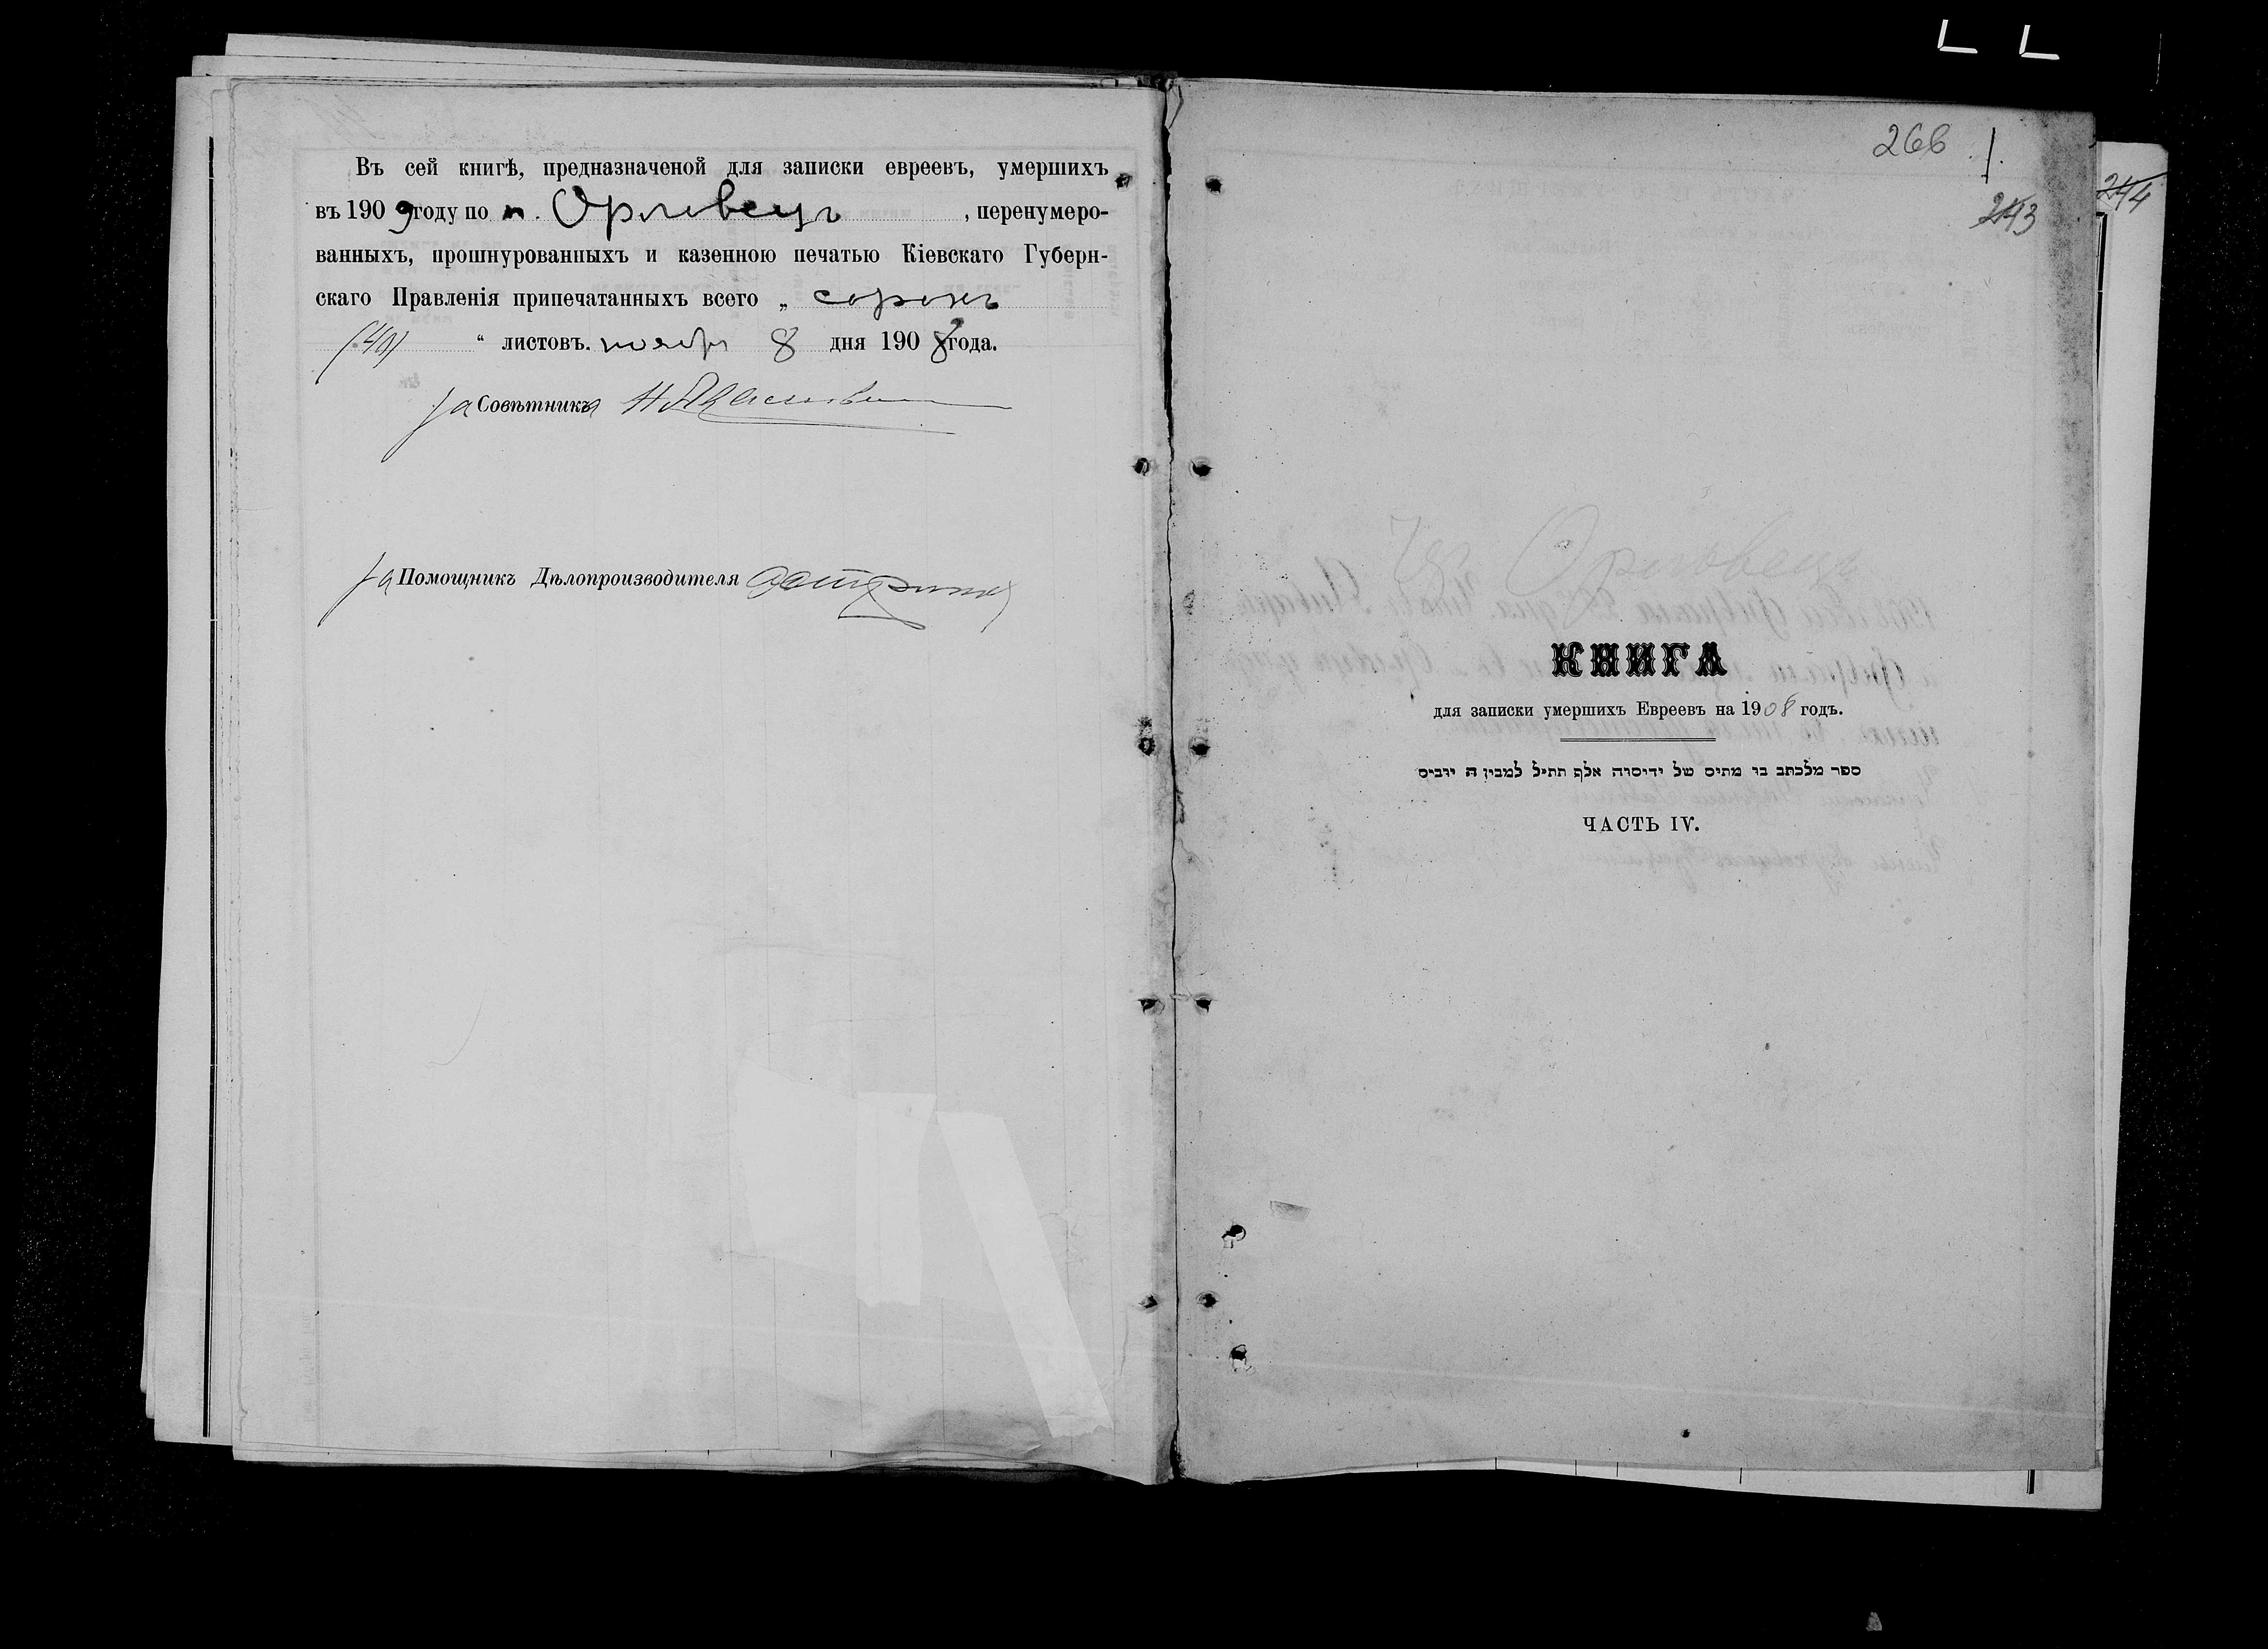 Въ сей книгѣ, предназначеной для записки евреевъ, умершихъ
въ 1909 году по м. Орловецъ, перенумеро-
ванныхъ, прошнурованныхъ и казенною печатью Кіевскаго Губерн-
скаго Правленія припечатанныхъ всего „ сорокъ
(40) “ листовъ. ноября 8 дня 1908 года.
За Совѣтника
За Помощникъ Дѣлопроизводителя
266
1
243
244
Орловецъ
КНИГА
для записки умершихъ Евреевъ на 1908 годъ.
ספר מלכתב בו מתים של ידיסוה אלף תתיל למבין ה יוביס
ЧАСТЬ IV.